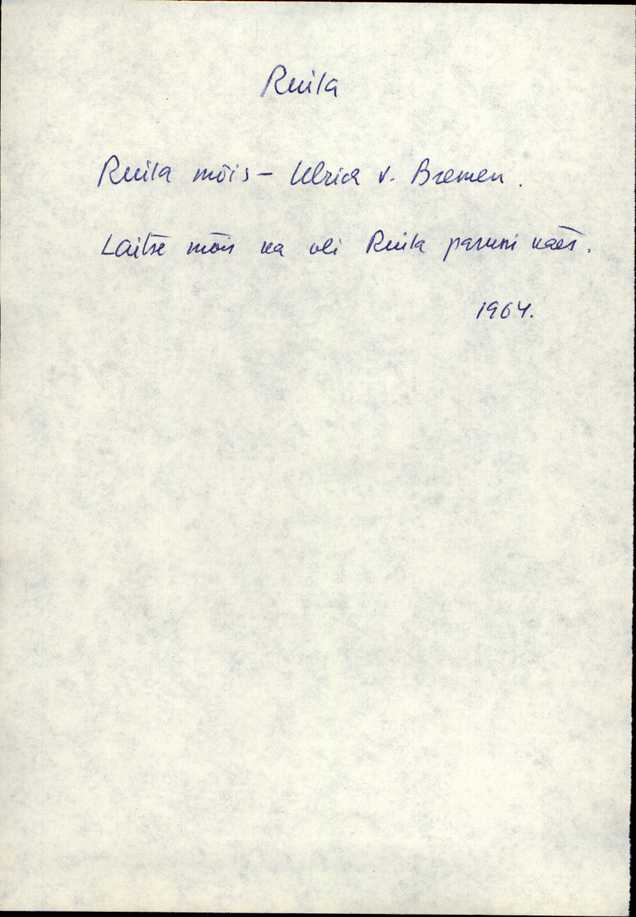 Ruila
Ruila mõis – Ulrich v. Bremen.
Laitse mõis ka oli Ruila paruni käes.
1964.